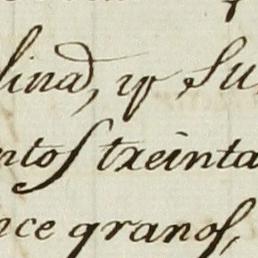 lina, y Su
ntos treinta
nce granos,